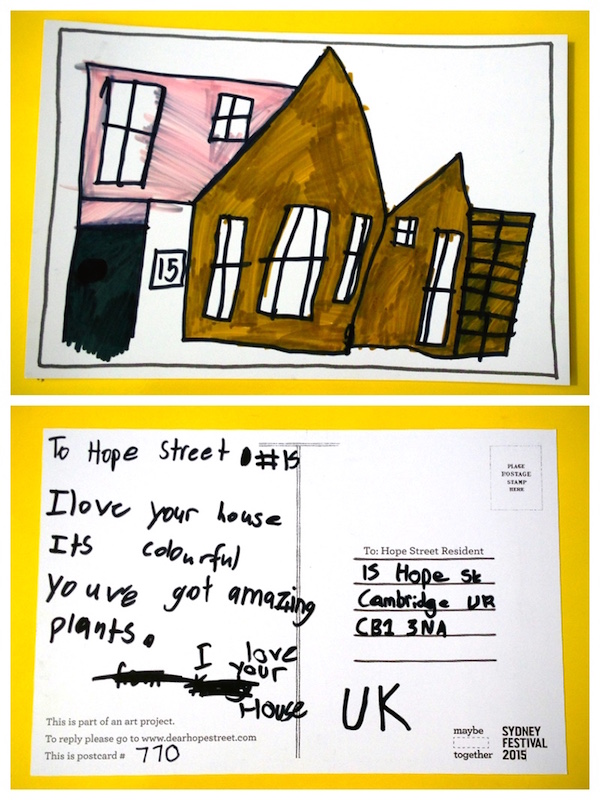 15
To Hope Street #15
I love your house
Its colourful
youve got amazing
plants.
I love
your
House
This is part of an art project.
To reply please go to www.dearhopestreet.com
This is postcard # 770
PLACE
POSTAGE
STAMP
HERE
To: Hope Street Resident
15 Hope St
Cambridge UK
CB1 3NA
UK
maybe
together
SYDNEY
FESTIVAL
2015